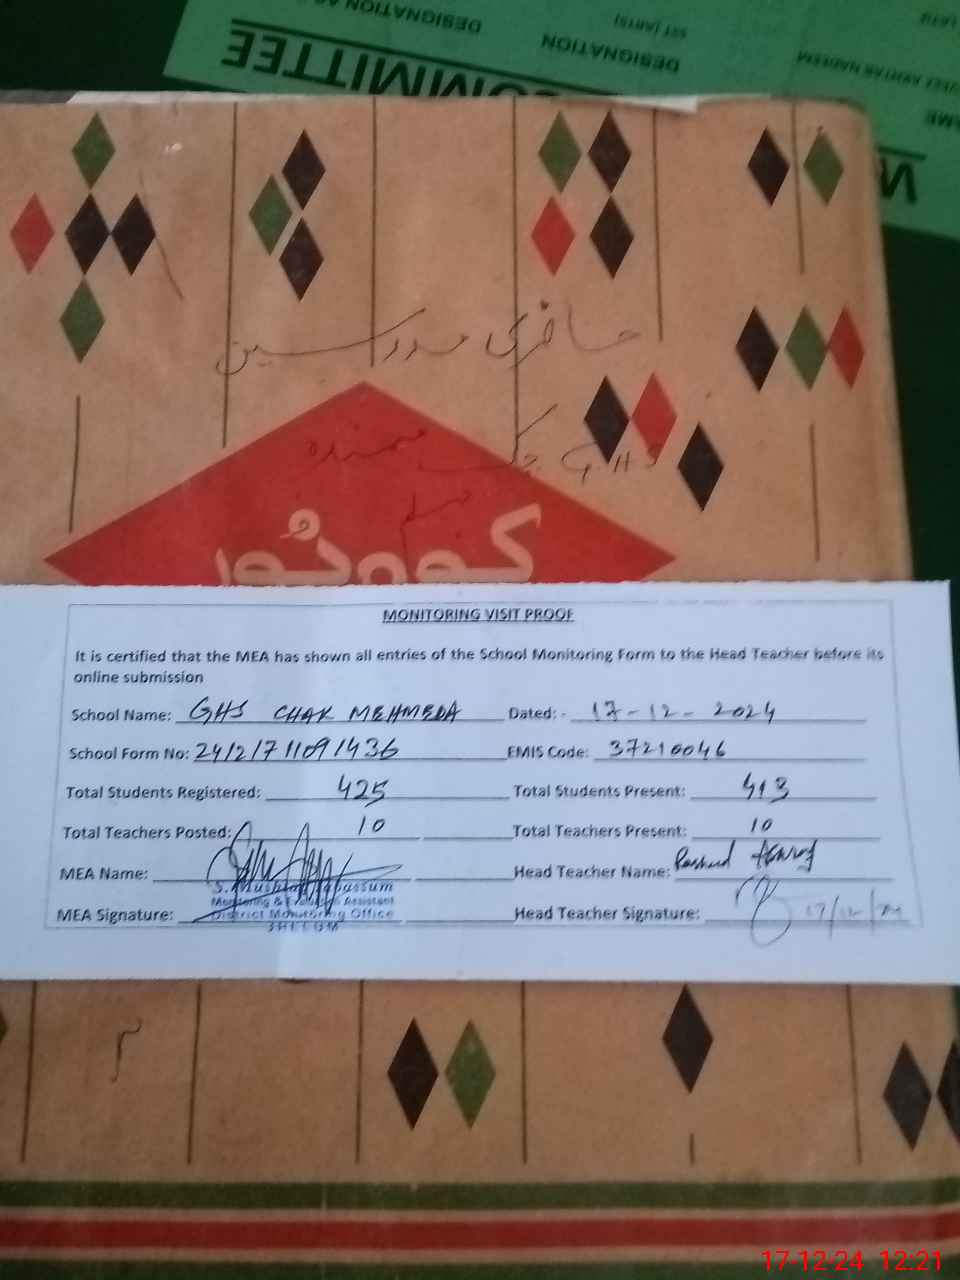 COMMITTEE
DESIGNATION
DESIGNATION
SST (ARTS)
حاضری مدرسین
GHS چک
MONITORING VISIT PROOF
It is certified that the MEA has shown all entries of the School Monitoring Form to the Head Teacher before its
online submission
School Name: GHS CHAK MEHMEDA Dated: - 17-12-2024
School Form No: EMIS Code: 37210046
Total Students Registered: 425 Total Students Present: 413
Total Teachers Posted: 10 Total Teachers Present: 10
MEA Name: Head Teacher Name: Rashid
Monitoring & Evaluation Assistant
MEA Signature: District Monitoring Office Head Teacher Signature: 17/12/24
JHELUM
17-12-24 12:21